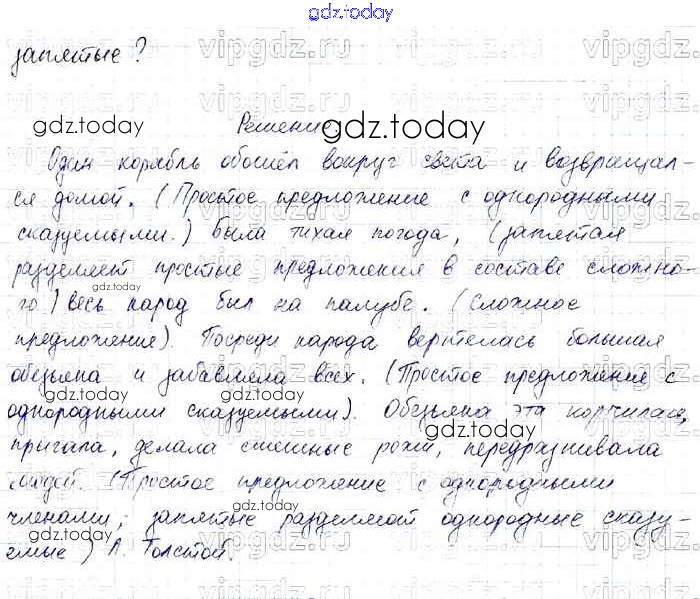 gdz.today
запятые?
Решение
Один корабль обошёл вокруг света и возвращал-
ся домой. (Простое предложение с однородными
сказуемыми.) Была тихая погода, (запятая
разделяет простые предложения в составе сложно-
го) весь народ был на палубе. (Сложное
предложение). Посреди народа вертелась большая
обезьяна и забавляла всех. (Простое предложение с
однородными сказуемыми). Обезьяна эта корчилась,
прыгала, делала смешные рожи, передразнивала
людей. (Простое предложение с однородными
членами; запятые разделяют однородные сказу-
емые) Л. Толстой.